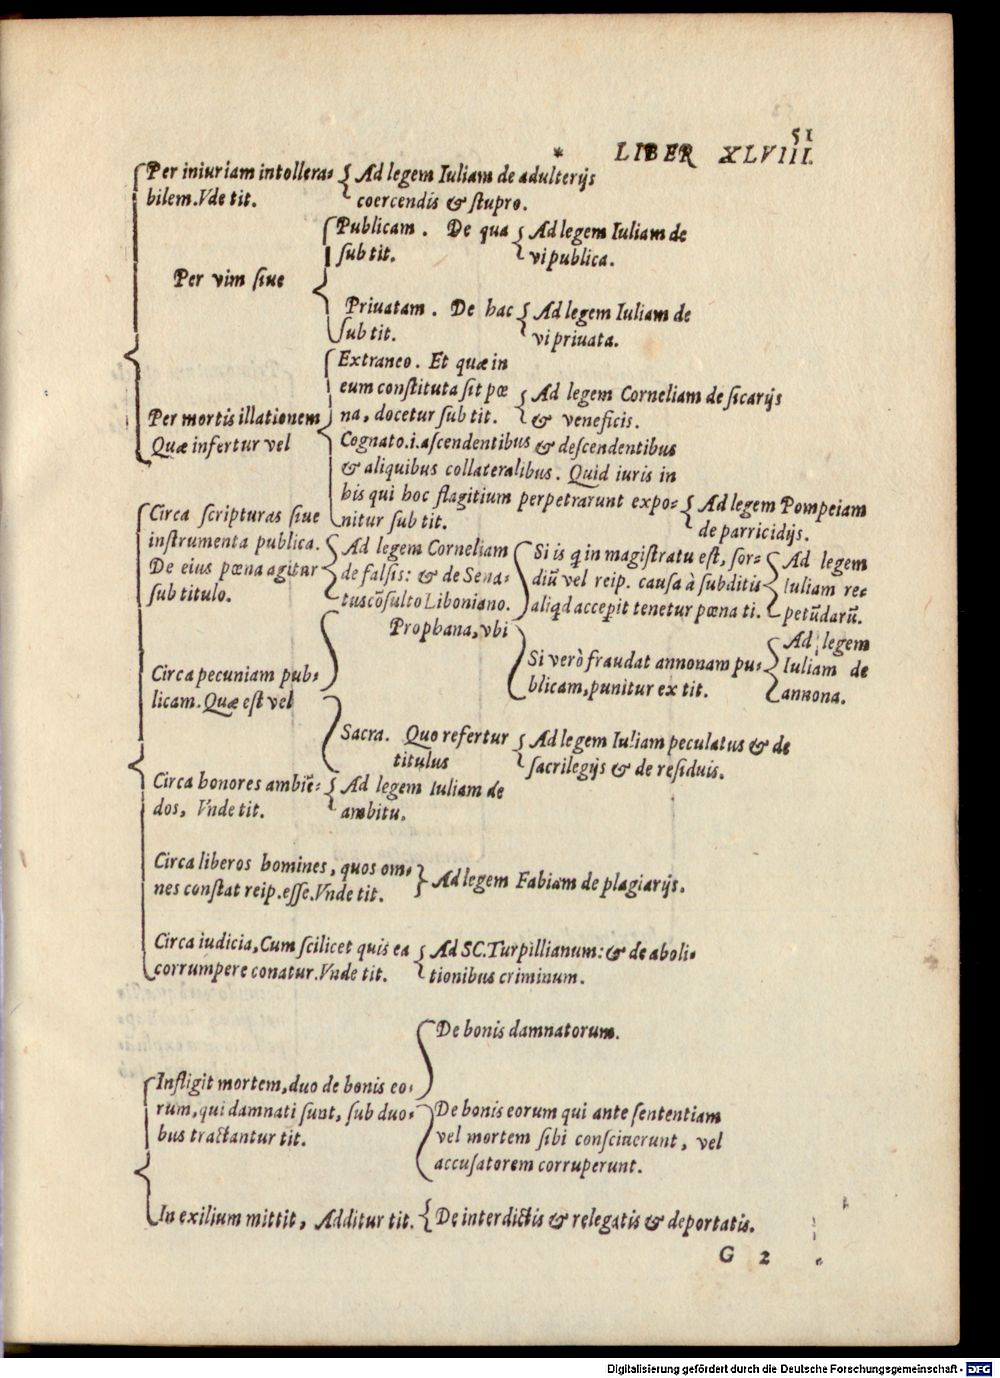 51
* LIBER XLVIII.
Per iniuriam intollera-
bilem. Vde tit.
Ad legem Iuliam de adulterijs
coercendis & stupro.
Per vim siue
Publicam. De qua
sub tit.
Ad legem Iuliam de
vi publica.
Priuatam. De hac
sub tit.
Ad legem Iuliam de
vi priuata.
Per mortis illationem
Quæ infertur vel
Extraneo. Et quæ in
eum constituta sit pœ
na, docetur sub tit.
Ad legem Corneliam de sicarijs
& veneficis.
Cognato.i.ascendentibus & descendentibus
& aliquibus collateralibus. Quid iuris in
his qui hoc flagitium perpetrarunt expo-
nitur sub tit.
Ad legem Pompeiam
de parricidijs.
Circa scripturas siue
instrumenta publica.
De eius pœna agitur
sub titulo.
Ad legem Corneliam
de falsis: & de Sena-
tuscōsulto Liboniano.
Circa pecuniam pub-
licam. Quæ est vel
Prophana, vbi
Si is q̃ in magistratu est, sor-
diū vel reip. causa à subditis
aliqd accepit tenetur pœna ti.
Ad legem
Iuliam re-
petūdarū.
Si verò fraudat annonam pu-
blicam, punitur ex tit.
Ad legem
Iuliam de
annona.
Sacra. Quo refertur
titulus
Ad legem Iuliam peculatus & de
sacrilegijs & de residuis.
Circa honores ambiē-
dos, Vnde tit.
Ad legem Iuliam de
ambitu.
Circa liberos homines, quos om-
nes constat reip. esse. Vnde tit.
Ad legem Fabiam de plagiarijs.
Circa iudicia, Cum scilicet quis ea
corrumpere conatur. Vnde tit.
Ad SC. Turpillianum: & de aboli-
tionibus criminum.
Infligit mortem, duo de bonis eo-
rum, qui damnati sunt, sub duo-
bus tractantur tit.
De bonis damnatorum.
De bonis eorum qui ante sententiam
vel mortem sibi consciuerunt, vel
accusatorem corruperunt.
In exilium mittit, Additur tit.
De interdictis & relegatis & deportatis.
G 2
Digitalisierung gefördert durch die Deutsche Forschungsgemeinschaft - DFG